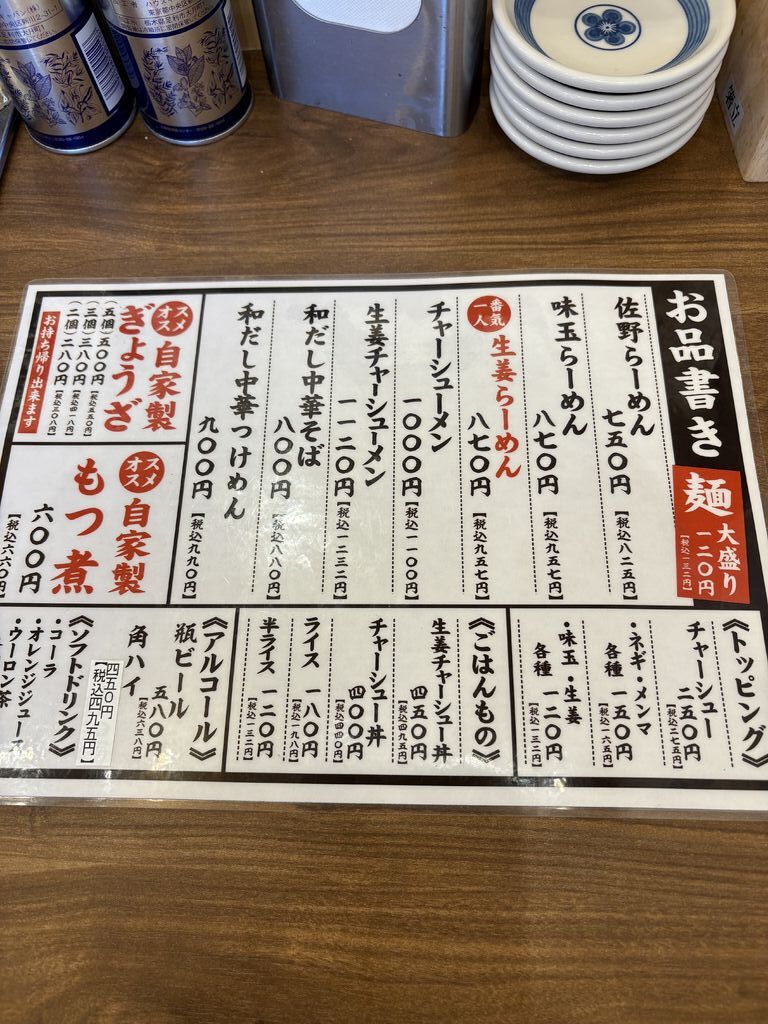 お品書き
麺
大盛り
一二〇円
【税込一三二円】
佐野らーめん
七五〇円【税込八二五円】
味玉らーめん
八七〇円【税込九五七円】
一番人気
生姜らーめん
八七〇円【税込九五七円】
チャーシューメン
一〇〇〇円【税込一一〇〇円】
生姜チャーシューメン
一一二〇円【税込一二三二円】
和だし中華そば
八〇〇円【税込八八〇円】
和だし中華つけめん
九〇〇円【税込九九〇円】
オススメ
自家製
ぎょうざ
(五個)五〇〇円【税込五五〇円】
(三個)三八〇円【税込四一八円】
(二個)二八〇円【税込三〇八円】
お持ち帰り出来ます
オススメ
自家製
もつ煮
六〇〇円
【税込六六〇円】
《トッピング》
チャーシュー
二五〇円
【税込二七五円】
・ネギ・メンマ
各種 一五〇円
【税込一六五円】
・味玉・生姜
各種 一二〇円
【税込一三二円】
《ごはんもの》
生姜チャーシュー丼
四五〇円
【税込四九五円】
チャーシュー丼
四〇〇円
【税込四四〇円】
ライス 一八〇円
【税込一九八円】
半ライス 一二〇円
【税込一三二円】
《アルコール》
瓶ビール
五八〇円
【税込六三八円】
角ハイ
四五〇円
【税込四九五円】
《ソフトドリンク》
・コーラ
・オレンジジュース
・ウーロン茶